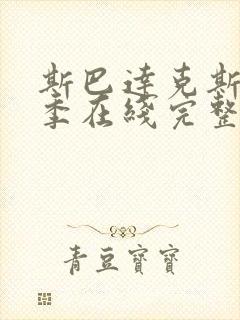 斯巴達克斯
季在綫完整
青豆寶寶